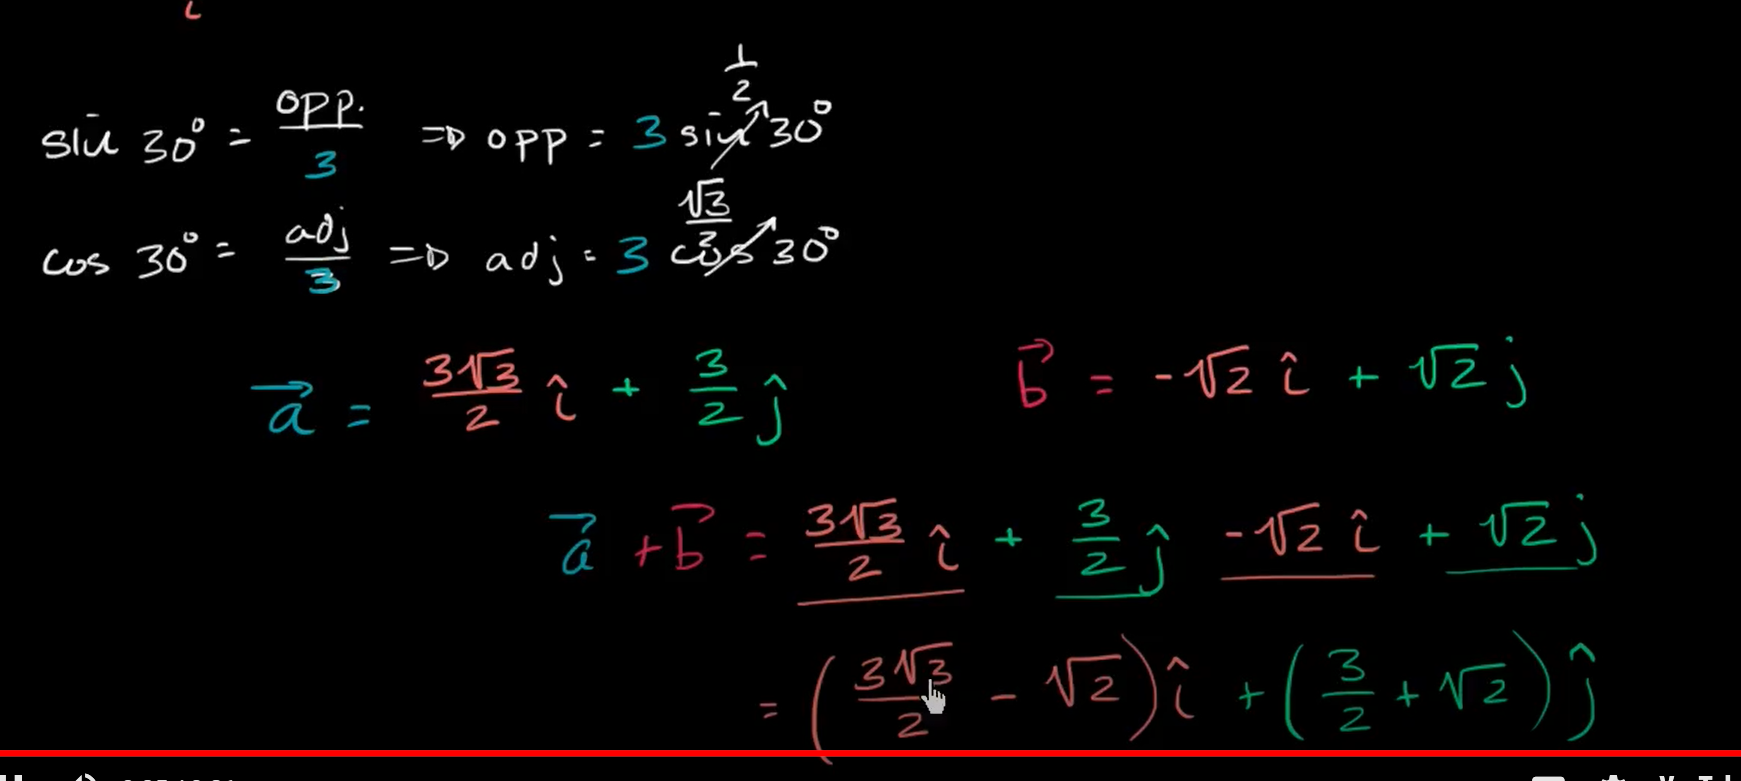 î
sin 30° = opp. / 3 ⇒ opp = 3 sin 30° 1/2
cos 30° = adj / 3 ⇒ adj = 3 cos 30° √3/2
a⃗ = 3√3/2 î + 3/2 ĵ
b⃗ = -√2 î + √2 j
a⃗ + b⃗ = 3√3/2 î + 3/2 ĵ -√2 î + √2 j
= (3√3/2 - √2) î + (3/2 + √2) ĵ